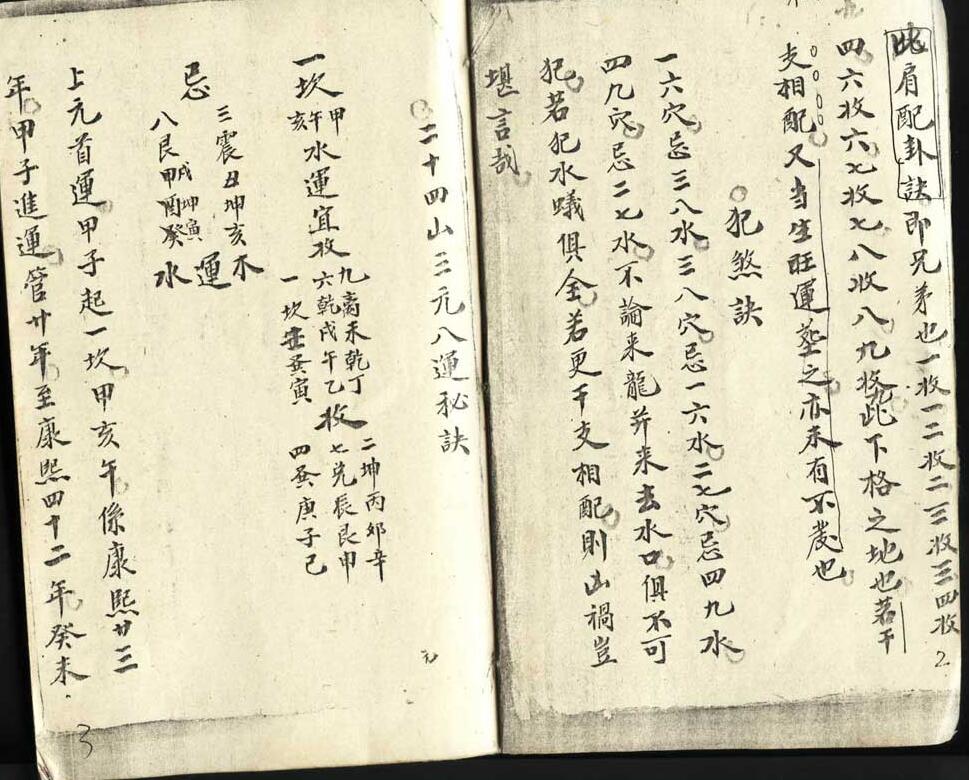 此肩配卦訣即兄弟也一收一二收二三收三四收
四六收六七收七八收八九收九此下格之地也若干
支相配又当生旺運塟之亦未有不發也
犯煞訣
一六穴忌三八水三八穴忌一六水二七穴忌四九水
四九穴忌二七水不論来龍并来去水口俱不可
犯若犯水蟻俱全若更干支相配則凶禍豈
堪言哉
2
二十四山三元八運秘訣
一坎甲午亥水運宜收九離未乾丁六乾戌午乙一坎壬巽寅收二坤丙卯辛七兌辰艮申四巽庚子己
忌三震丑坤亥八艮甲戌坤寅酉癸木運水
上元首運甲子起一坎甲亥午係康熙廿三
年甲子進運管廿年至康熙四十二年癸未
元
3